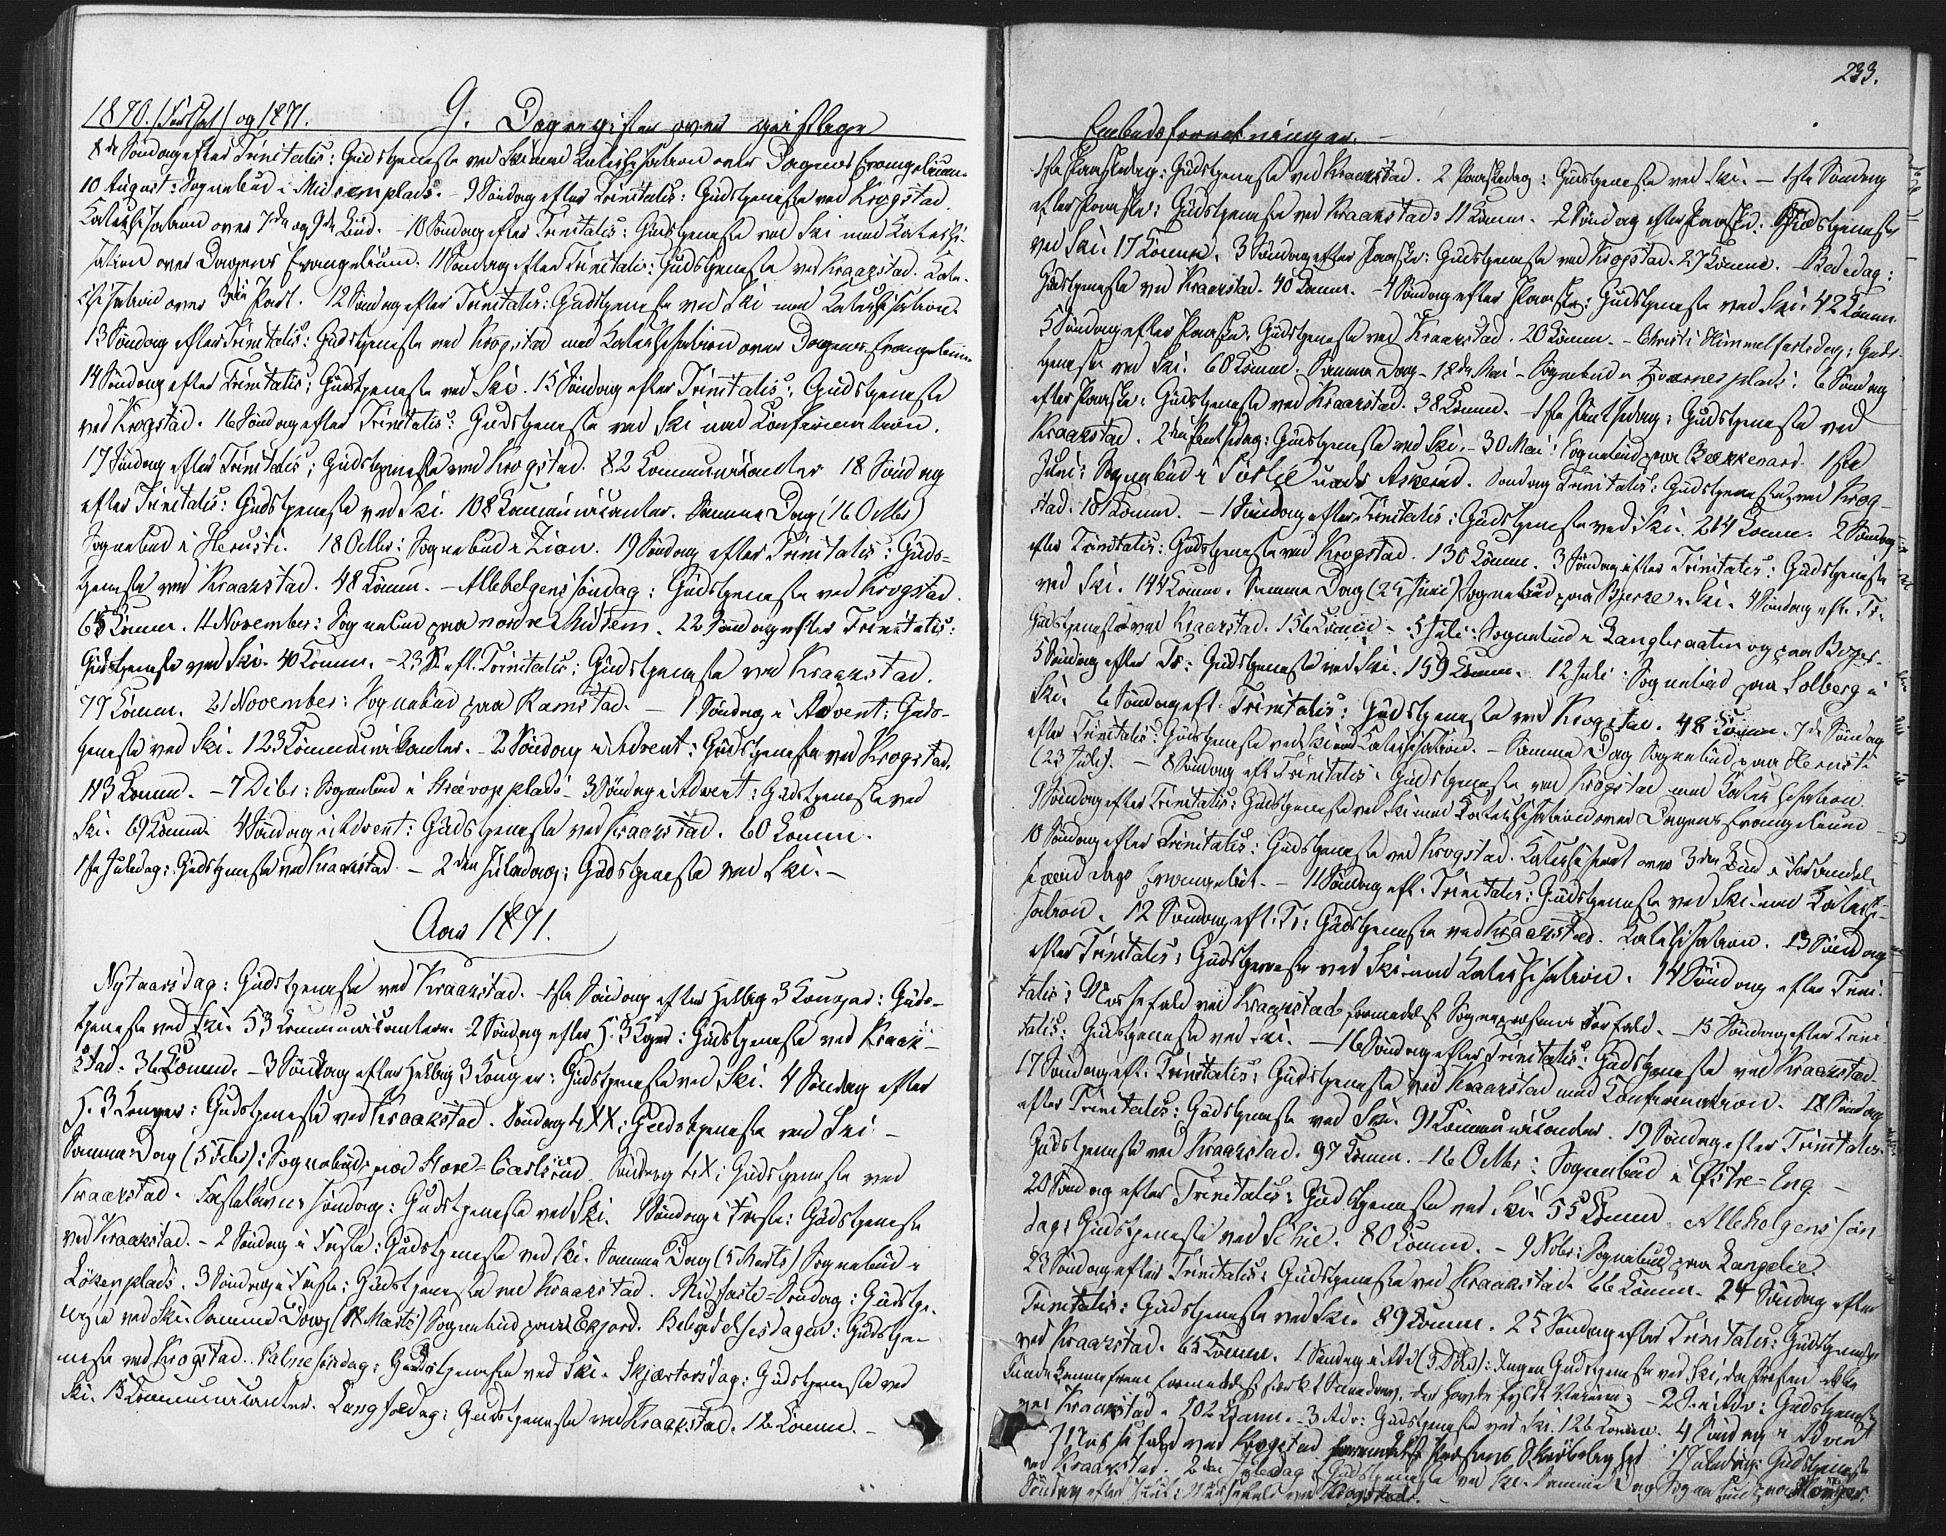 1870. (Fortsat) og 1871.
9. Dagregister over geistlige
8de Søndag efter Trinitatis: Gudstjeneste ved Ski med Katechisation over Dagens Evangelium.
10 August: Sognebud i Midsemplads. - 9 Søndag efter Trinitatis: Gudstjeneste ved Krogstad.
Katechisation over 7de og 9de Bud. - 10 Søndag efter Trinitatis: Gudstjeneste ved Ski med Katechi-
sation over Dagens Evangelium. 11 Søndag efter Trinitatis: Gudstjeneste ved Kraakstad. Kate-
chisation over 3die Part. 12 Søndag efter Trinitatis: Gudstjeneste ved Ski med Katechisation.
13 Søndag efter Trinitatis: Gudstjeneste ved Krogstad med Katechisation over Dagens Evangelium
14 Søndag efter Trinitatis: Gudstjeneste ved Ski. 15 Søndag efter Trinitatis: Gudstjeneste
ved Krogstad. 16 Søndag efter Trinitatis: Gudstjeneste ved Ski med Confirmation.
17 Søndag efter Trinitatis: Gudstjeneste ved Krogstad. 82 Communicanter 18 Søndag
efter Trinitatis: Gudstjeneste ved Ski. 108 Communicanter. Samme Dag (16 Octbr)
Sognebud i Herusti. 18 Octbr: Sognebud i Zion. 19 Søndag efter Trinitatis: Guds-
tjeneste ved Kraakstad. 48 Comm. - Allehelgenssøndag: Gudstjeneste ved Krogstad.
65 Comm. 11 November: Sognebud paa nordre Midsem. 22 Søndag efter Trinitatis:
Gudstjeneste ved Ski. 40 Comm. - 23 S. eft. Trinitatis: Gudstjeneste ved Kraakstad.
77 Comm. 21 November: Sognebud paa Ramstad. - 1 Søndag i Advent: Guds-
tjeneste ved Ski. 123 Communicanter. - 2 Søndag i Advent: Gudstjeneste ved Krogstad.
113 Comm. - 7 Dcbr: Sognebud i plads. 3 Søndag i Advent: Gudstjeneste ved
Ski. 69 Comm. 4 Søndag i Advent: Gudstjeneste ved Kraakstad. 60 Comm.
1ste Juledag: Gudstjeneste ved Kraakstad. - 2den Juledag: Gudstjeneste ved Ski. -
Aar 1871.
Nytaarsdag: Gudstjeneste ved Kraakstad. 1ste Søndag efter Hellig 3 Konger: Guds-
tjeneste ved Ski. 53 Communicanter. 2 Søndag efter H. 3 Kger: Gudstjeneste ved Kraak-
stad. 36 Comm. - 3 Søndag efter Hellig 3 Konger: Gudstjeneste ved Ski. 4 Søndag efter
H. 3 Konger: Gudstjeneste ved Kraakstad. Søndag LXX: Gudstjeneste ved Ski -
Samme Dag (5 Febr): Sognebud paa Store-Carlsrud. Søndag LX: Gudstjeneste ved
Kraakstad. Fastelavnssøndag: Gudstjeneste ved Ski. 1 Søndag i Faste: Gudstjeneste
ved Kraakstad. - 2 Søndag i Faste: Gudstjeneste ved Ski. Samme Dag (5 Marts) Sognebud i
Løkenplads. 3 Søndag i Faste: Gudstjeneste ved Kraakstad. Midfaste-Søndag: Gudstje-
neste ved Ski. Samme Dag (Marts) Sognebud paa Ekjord. Bebudelsesdagen: Gudstje-
neste ved Krogstad. Palmesøndag: Gudstjeneste ved Ski. Skjærtorsdag: Gudstjeneste ved
Ski. 15 Communicanter. Langfredag: Gudstjeneste ved Kraakstad. 12 Comm. -
233.
Embedsforretninger. -
1ste Paaskedag: Gudstjeneste ved Kraakstad. 2 Paaskedag: Gudstjeneste ved Ski. - 1ste Søndag
efter Paaske: Gudstjeneste ved Kraakstad: 11 Comm. 2 Søndag efter Paaske: Gudstjeneste
ved Ski. 17 Comm. 3 Søndag efter Paaske: Gudstjeneste ved Krogstad. 27 Comm. - Bededag:
Gudstjeneste ved Kraakstad. 40 Comm. 4 Søndag efter Paaske: Gudstjeneste ved Ski. 42 Comm
5 Søndag efter Paaske: Gudstjeneste ved Kraakstad. 20 Comm. - Christi Himmelfartsdag: Guds-
tjeneste ved Ski. 60 Comm. Samme Dag - 18de Mai - Sognebud i Kværnesplads. 6 Søndag
efter Paaske: Gudstjeneste ved Kraakstad. 38 Comm. - 1ste Pintsedag: Gudstjeneste ved
Kraakstad. 2den Pintsedag: Gudstjeneste ved Ski. - 30 Mai: Sognebud paa Bækkevard 1ste
Juni: Sognebud i under Askerud. Søndag Trinitatis: Gudstjeneste ved Krog-
stad. 101 Comm. - 1 Søndag efter Trinitatis: Gudstjeneste ved Ski. 214 Comm. 2 Søndag
efter Trinitatis: Gudstjeneste ved Krogstad. 130 Comm. 3 Søndag efter Trinitatis: Gudstjeneste
ved Ski. 144 Comm. Samme Dag (25 Juni) Sognebud paa Bjerke i Ski. 4 Søndag eft. Tr.
Gudstjeneste ved Kraakstad. 156 Comm - 5 Juli: Sognebud i Langkraaten og paa
5 Søndag efter Tr: Gudstjeneste ved Ski. 159 Comm. 12 Juli: Sognebud paa Solberg i
Ski. 6 Søndag eft. Trinitatis: Gudstjeneste ved Krogstad. 48 Comm. 7de Søndag
efter Trinitatis: Gudstjeneste ved Ski med Catechisation. - Samme Dag Sognebud paa Herusti
(23 Juli). - 8 Søndag eft Trinitatis: Gudstjeneste ved Krogstad med Katechisation.
9 Søndag efter Trinitatis: Gudstjeneste ved Ski med Katechisation over Dagens Evangelium -
10 Søndag efter Trinitatis: Gudstjeneste ved Krogstad. Katechiseret over 3die Bud i
Dags Evangelium. - 11 Søndag eft. Trinitatis: Gudstjeneste ved Ski med Katechi-
sation. 12 Søndag eft. Tr: Gudstjeneste ved Kraakstad. Katechisation. 13 Søndag
efter Trinitatis: Gudstjeneste ved Ski med Katechisation. 14 Søndag efter Trini-
tatis: Messefald ved Kraakstad formedelst Sognepræstens Forfald. - 15 Søndag efter Trini-
tatis: Gudstjeneste ved Ski. - 16 Søndag efter Trinitatis: Gudstjeneste ved Kraakstad.
17 Søndag eft. Trinitatis: Gudstjeneste ved Kraakstad med Confirmation. 18 Søndag
efter Trinitatis: Gudstjeneste ved Ski. 91 Communicanter. 19 Søndag efter Trinitatis
Gudstjeneste ved Kraakstad. 97 Comm. - 16 Octbr: Sognebud i Østre-Eng -
20 Søndag efter Trinitatis: Gudstjeneste ved Ski. 55 Comm. Allehelgenssøn-
dag: Gudstjeneste ved Ski. 80 Comm. - 9 Novbr: Sognebud paa Langelie.
23 Søndag efter Trinitatis: Gudstjeneste ved Kraakstad. 66 Comm. 24 Søndag efter
Trinitatis: Gudstjeneste ved Ski. 89 Comm. 25 Søndag efter Trinitatis: Gudstjeneste
ved Kraakstad. 65 Comm. 1 Søndag i Adv (3 Dcbr): Ingen Gudstjeneste ved Ski, da Præsten ikke
kunde komme frem formedelst stærkt Snedrev, der havde fyldt Veiene; - 2 S. i Adv: Gudstjeneste
ved Kraakstad. 102 Comm. - 3 Adv: Gudstjeneste ved Ski. 126 Comm. 4 Søndag i Advent
Messefald ved Krogstad formedelst Præstens Skrøbelighed. 1 Juledag: Gudstjeneste
ved Kraakstad. 2den Juledag: Gudstjeneste ved Ski. Samme Dag Sognebud paa
Søndag efter Juul: Messefald ved Krogstad. -